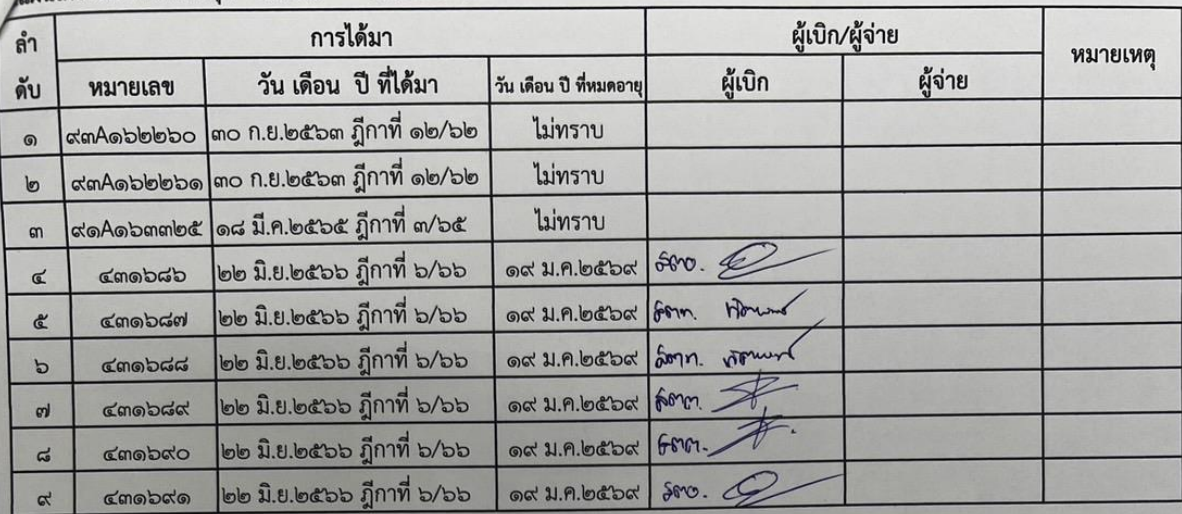 ลำดับ การได้มา ผู้เบิก/ผู้จ่าย หมายเหตุ
หมายเลข วัน เดือน ปี ที่ได้มา วัน เดือน ปี ที่หมดอายุ ผู้เบิก ผู้จ่าย
๑ ๙๓A๑๖๒๒๖๐ ๓๐ ก.ย.๒๕๖๓ ฎีกาที่ ๑๒/๖๒ ไม่ทราบ
๒ ๙๓A๑๖๒๒๖๑ ๓๐ ก.ย.๒๕๖๓ ฎีกาที่ ๑๒/๖๒ ไม่ทราบ
๓ ๙๑A๑๖๓๓๒๕ ๑๘ มี.ค.๒๕๖๕ ฎีกาที่ ๓/๖๕ ไม่ทราบ
๔ ๔๓๑๖๘๖ ๒๒ มิ.ย.๒๕๖๖ ฎีกาที่ ๖/๖๖ ๑๙ ม.ค.๒๕๖๙
๕ ๔๓๑๖๘๗ ๒๒ มิ.ย.๒๕๖๖ ฎีกาที่ ๖/๖๖ ๑๙ ม.ค.๒๕๖๙
๖ ๔๓๑๖๘๘ ๒๒ มิ.ย.๒๕๖๖ ฎีกาที่ ๖/๖๖ ๑๙ ม.ค.๒๕๖๙
๗ ๔๓๑๖๘๙ ๒๒ มิ.ย.๒๕๖๖ ฎีกาที่ ๖/๖๖ ๑๙ ม.ค.๒๕๖๙
๘ ๔๓๑๖๙๐ ๒๒ มิ.ย.๒๕๖๖ ฎีกาที่ ๖/๖๖ ๑๙ ม.ค.๒๕๖๙
๙ ๔๓๑๖๙๑ ๒๒ มิ.ย.๒๕๖๖ ฎีกาที่ ๖/๖๖ ๑๙ ม.ค.๒๕๖๙